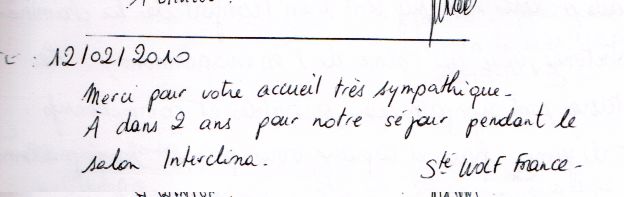 12/02/2010
Merci pour votre accueil très sympathique.
À dans 2 ans pour notre séjour pendant le
salon Interclima.
Sté WOLF France -